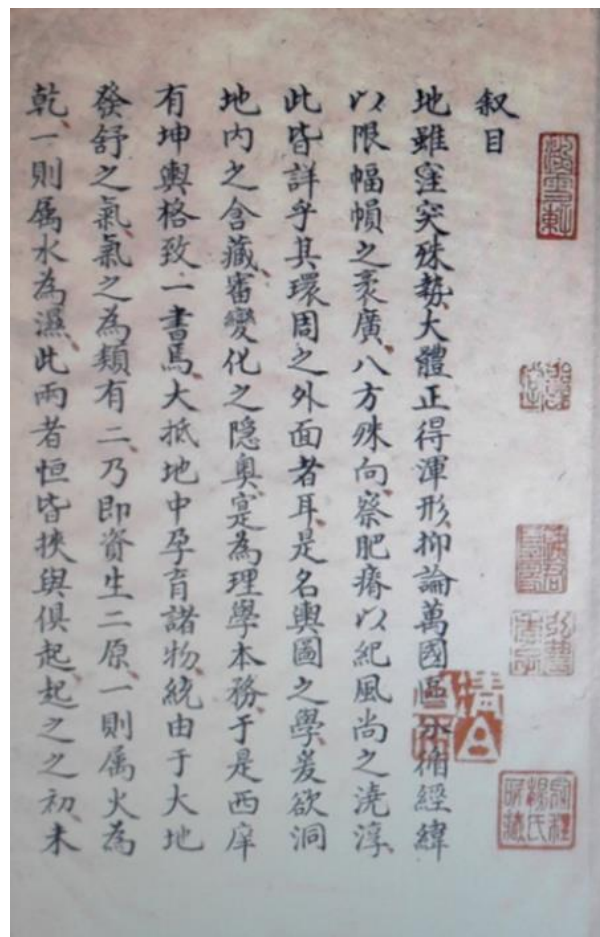 叙目
地雖窪突殊勢、大體正得渾形、抑論萬國區分循經緯
以限幅幀之袤廣、八方殊向、察肥瘠以紀風尚之澆淳、
此皆詳乎其環周之外面者耳、是名輿圖之學、爰欲洞
地內之含藏、審變化之隐奥、寔為理學本務、于是西庠
有坤輿格致一書焉、大抵地中孕育諸物、統由于大地
發舒之氣、氣之為類有二、乃即資生二原、一則属火為
乾、一則属水為濕、此兩者恒皆挾與俱起、起之之初、未